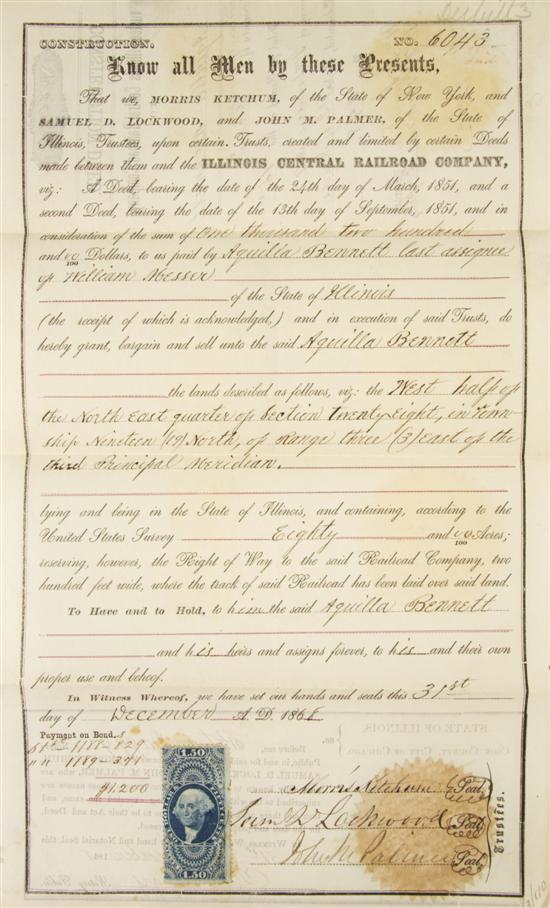 CONSTRUCTION. NO. 6043
Know all Men by these Presents,
That we, MORRIS KETCHUM, of the State of New York, and
SAMUEL D. LOCKWOOD, and JOHN M. PALMER, of the State of
Illinois, Trustees, upon certain Trusts, created and limited by certain Deeds
made between them and the ILLINOIS CENTRAL RAILROAD COMPANY,
viz: A Deed, bearing the date of the 24th day of March, 1851, and a
second Deed, bearing the date of the 13th day of September, 1851, and in
consideration of the sum of One thousand two hundred
and 00/100 Dollars, to us paid by Aquilla Bennett last assignee
of William Messer
of the State of Illinois
(the receipt of which is acknowledged,) and in execution of said Trusts, do
hereby grant, bargain and sell unto the said Aquilla Bennett
the lands described as follows, viz: the West half of
the North East quarter of Section twenty Eight, in town-
ship Nineteen (19) North, of range three (3) east of the
third Principal Meridian.
lying and being in the State of Illinois, and containing, according to the
United States Survey Eighty and 00/100 Acres;
reserving, however, the Right of Way to the said Railroad Company, two
hundred feet wide, where the track of said Railroad has been laid over said land.
To Have and to Hold, to him the said Aquilla Bennett
and his heirs and assigns forever, to his and their own
proper use and behoof.
In Witness Whereof, we have set our hands and seals this 31st
day of December A.D. 1868
Payment on Bonds
1188-829
1189-371
$1200
1.50
1.50
Morris Ketchum Seal
Sam D Lockwood Seal
John M Palmer Seal
Trustees.